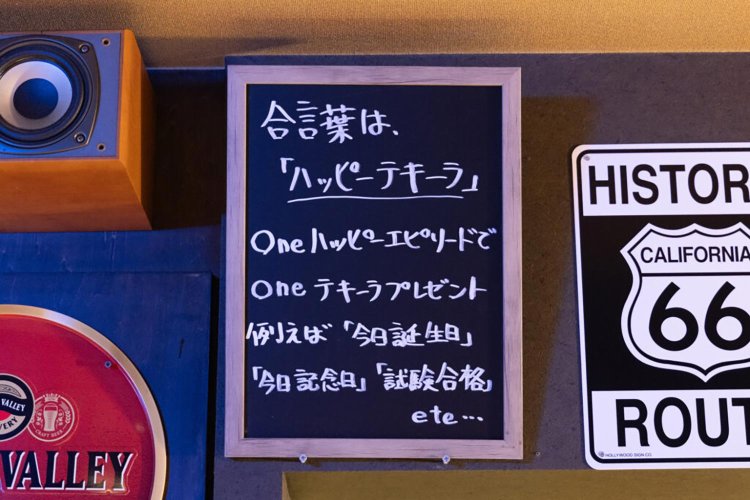 合言葉は、
「ハッピーテキーラ」
Oneハッピーエピソードで
one テキーラプレゼント
例えば「今日誕生日」
「今日記念日」「試験合格」
etc…
HISTOR
CALIFORNIA
66
ROUT
HOLLYWOOD SIGN CO.
VALLEY
CRAFT BEER
VALLEY